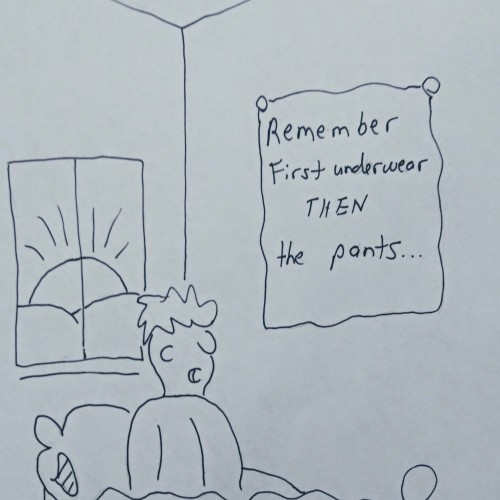 Remember
First underwear
THEN
the pants...